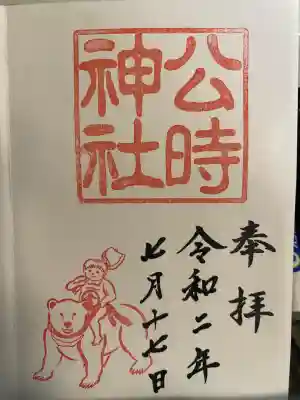 公時
神社
奉拝
令和二年
七月十七日